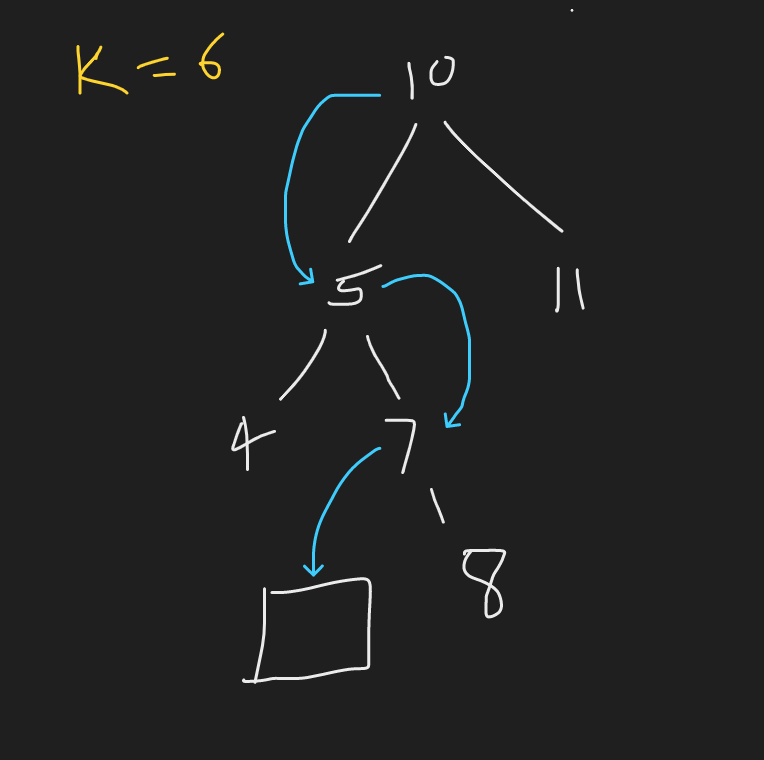 K = 6
10
5
11
4
7
8